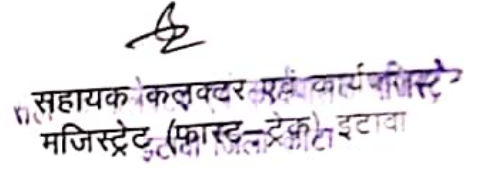 सहायक कलक्टर एवं कार्य
मजिस्ट्रेट (फास्ट-ट्रेक) इटावा